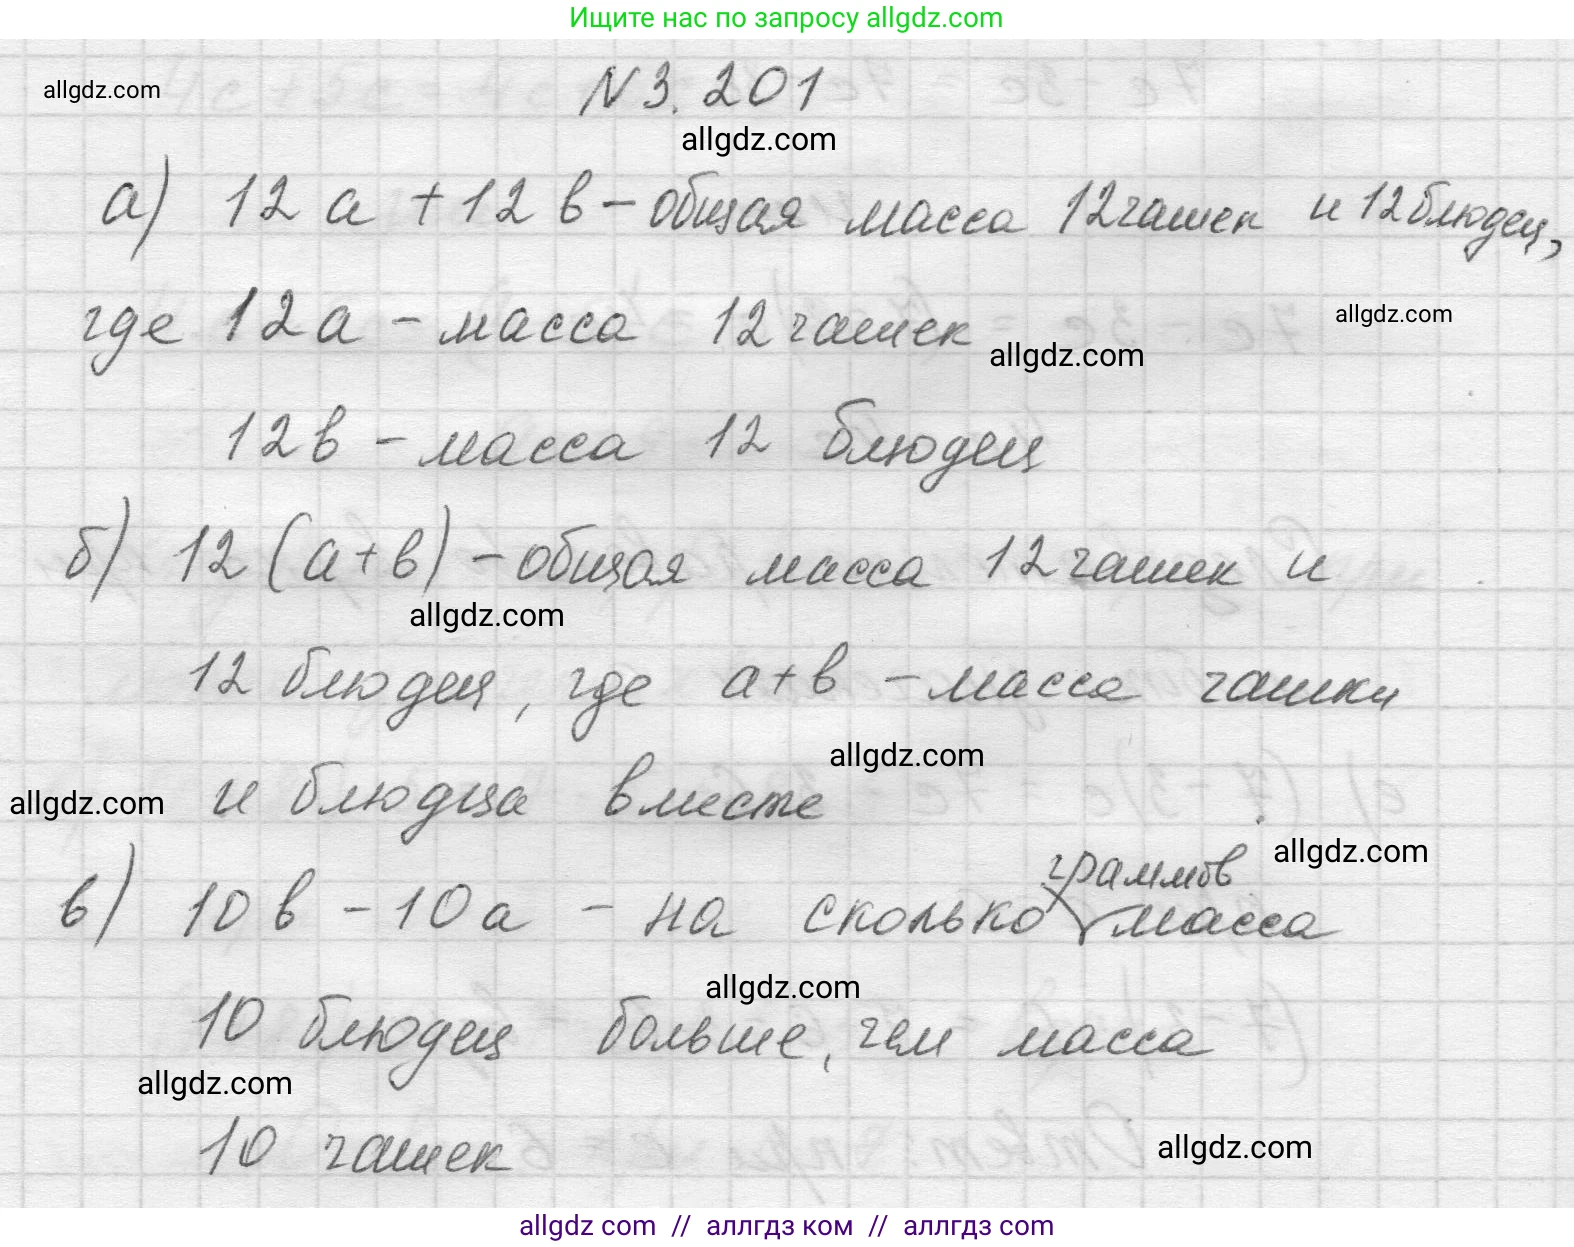 Ищите нас по запросу allgdz.com
allgdz.com
N 3.201
allgdz.com
а) 12 а + 12 в - общая масса 12 чашек и 12 блюдец,
где 12 а - масса 12 чашек
allgdz.com
allgdz.com
12 в - масса 12 блюдец
б) 12 (а + в) - общая масса 12 чашек и
allgdz.com
12 блюдец, где а + в - масса чашки
allgdz.com
allgdz.com и блюдца вместе
граммов allgdz.com
в) 10 в - 10 а - на сколько масса
allgdz.com
10 блюдец больше, чем масса
allgdz.com
10 чашек
allgdz.com
allgdz com // аллгдз ком // аллгдз com